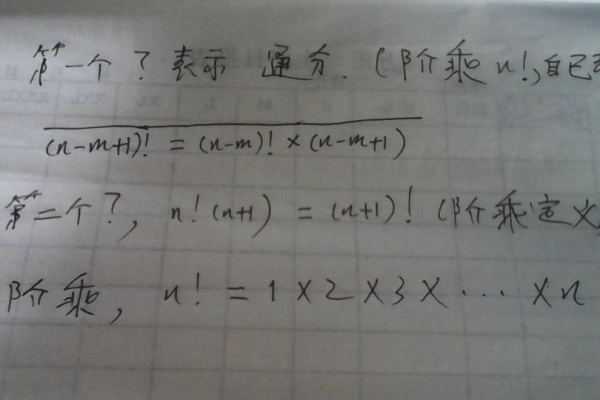 第一个？表示 通分.（阶乘n!,自己
(n-m+1)! = (n-m)! × (n-m+1)
第二个？, n!(n+1) = (n+1)!（阶乘定义
阶乘, n! = 1×2×3×…×n